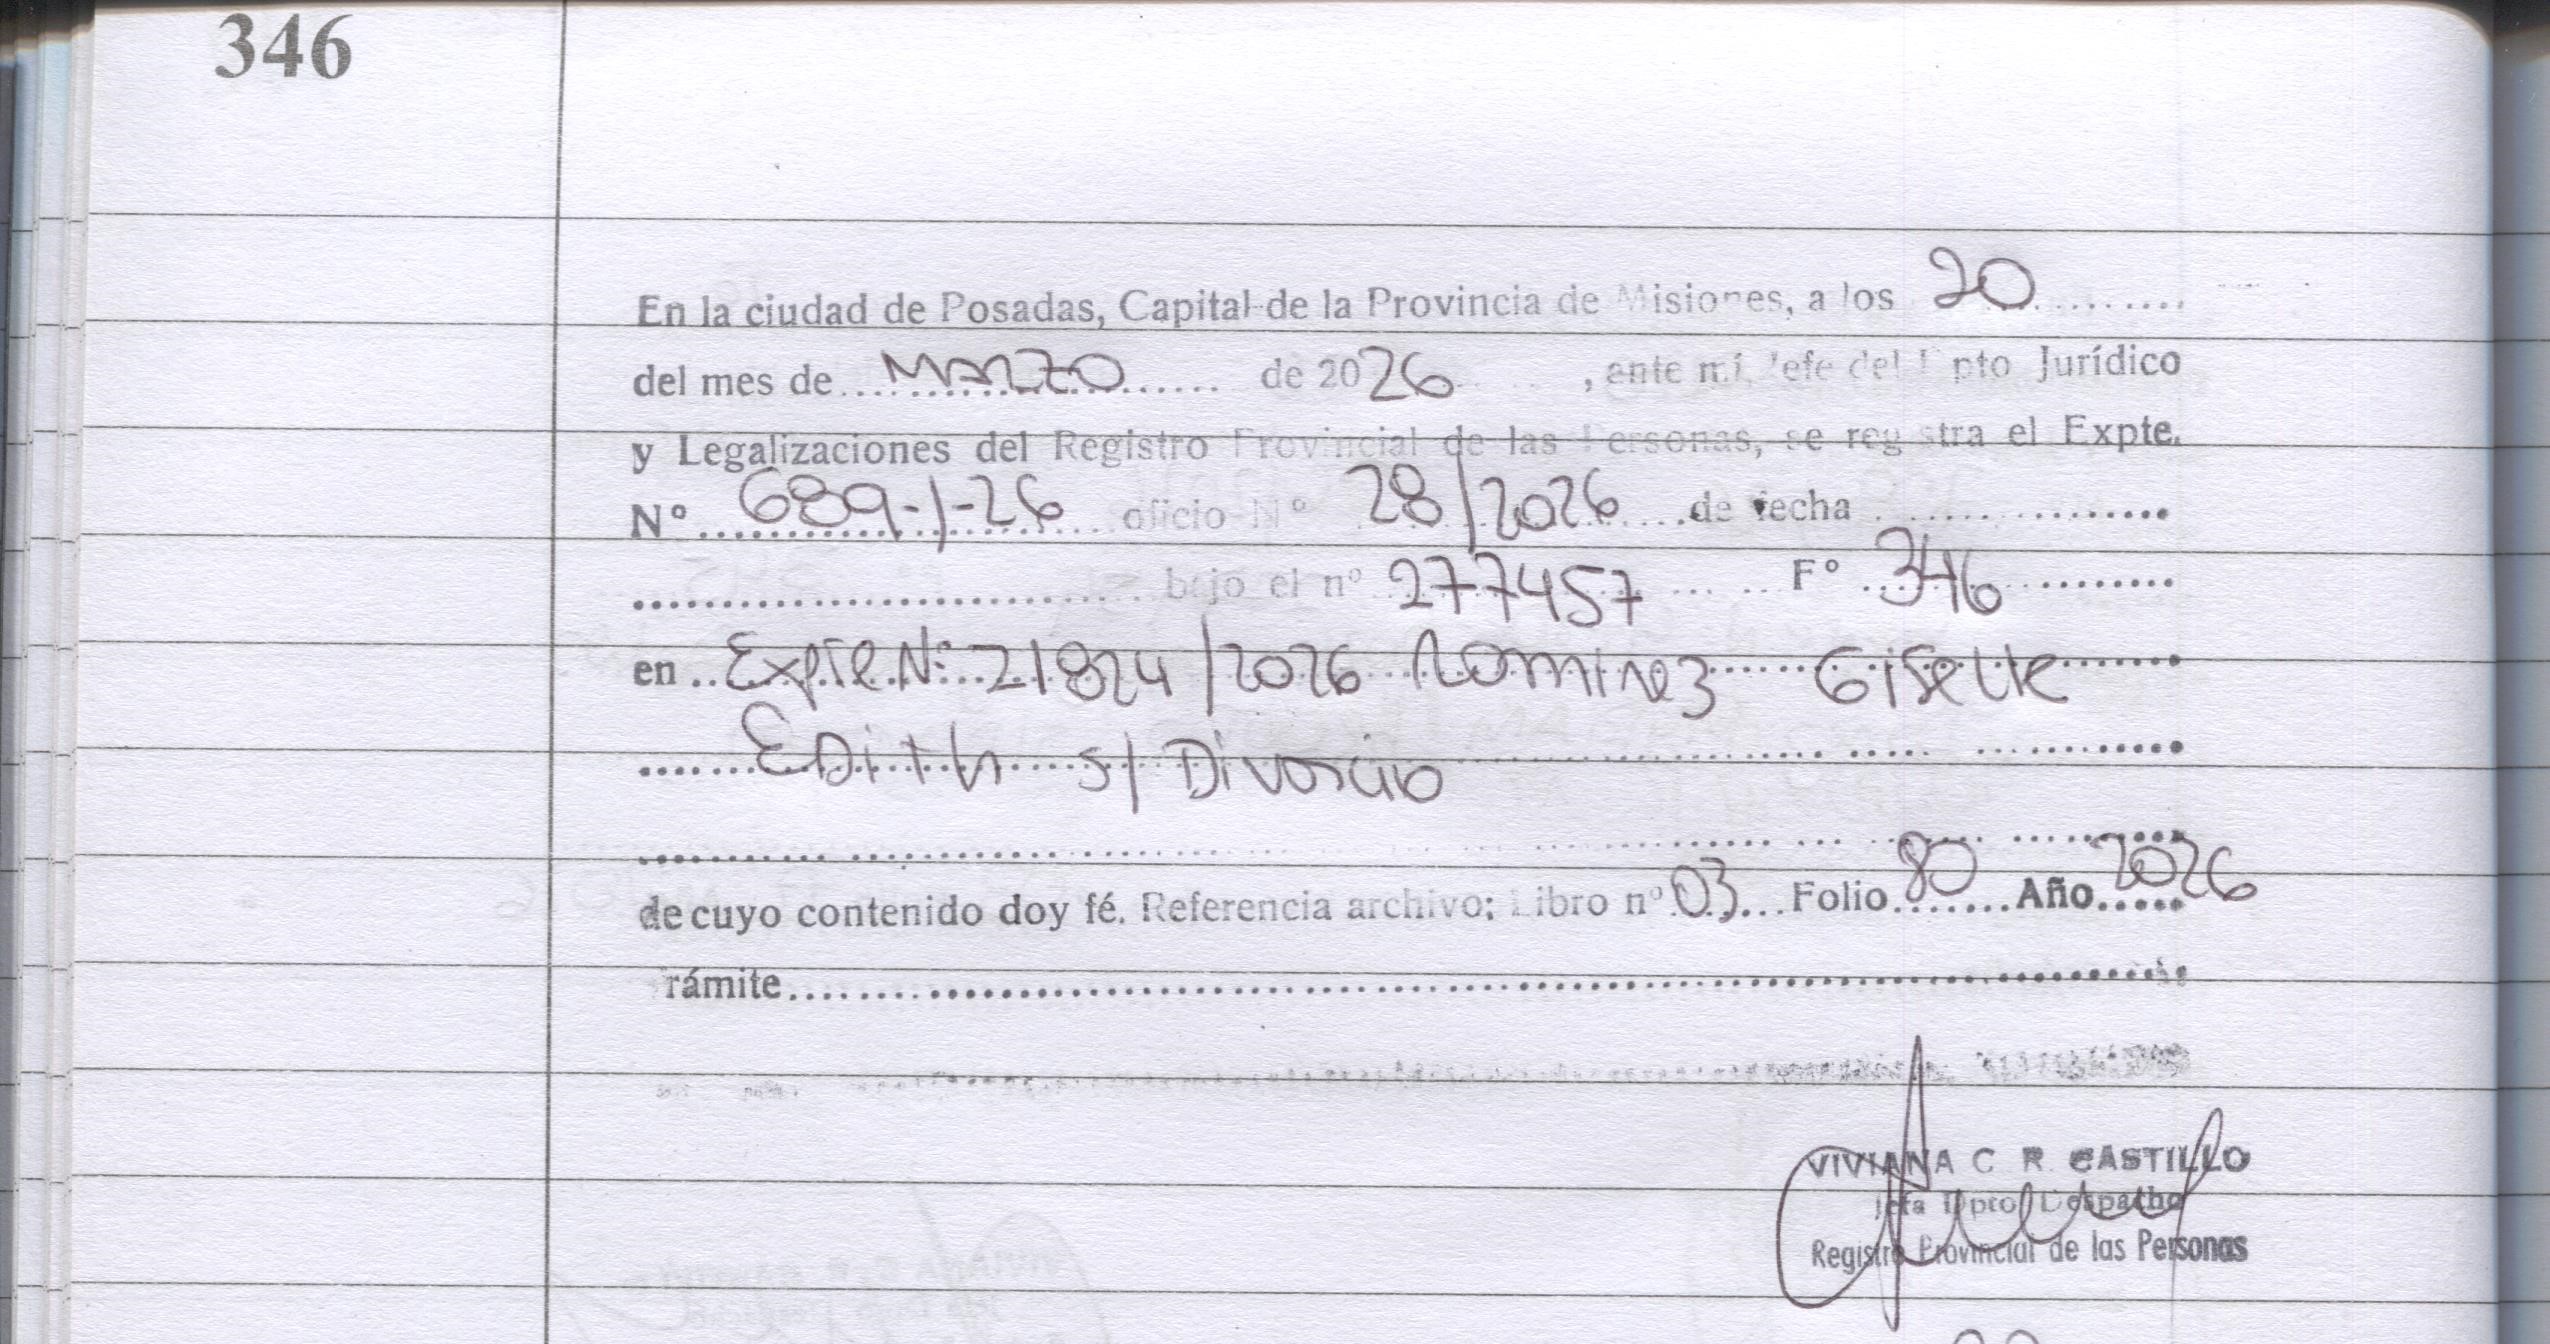 346
En la ciudad de Posadas, Capital de la Provincia de Misiones, a los 20
del mes de MARZO de 2026, ante mí, Jefe del Dpto Jurídico
y Legalizaciones del Registro Provincial de las Personas, se registra el Expte.
N° 689-1-26 oficio N° 28/2026 de fecha
bajo el n° 277457 F° 346
en Expte N° 21824/2026 Giselle
Edith s/ Divorcio
de cuyo contenido doy fé. Referencia archivo: Libro n° 03 Folio 80 Año 2026
rámite
VIVIANA C R CASTILLO
Jefa Dpto Despacho
Registro Provincial de las Personas